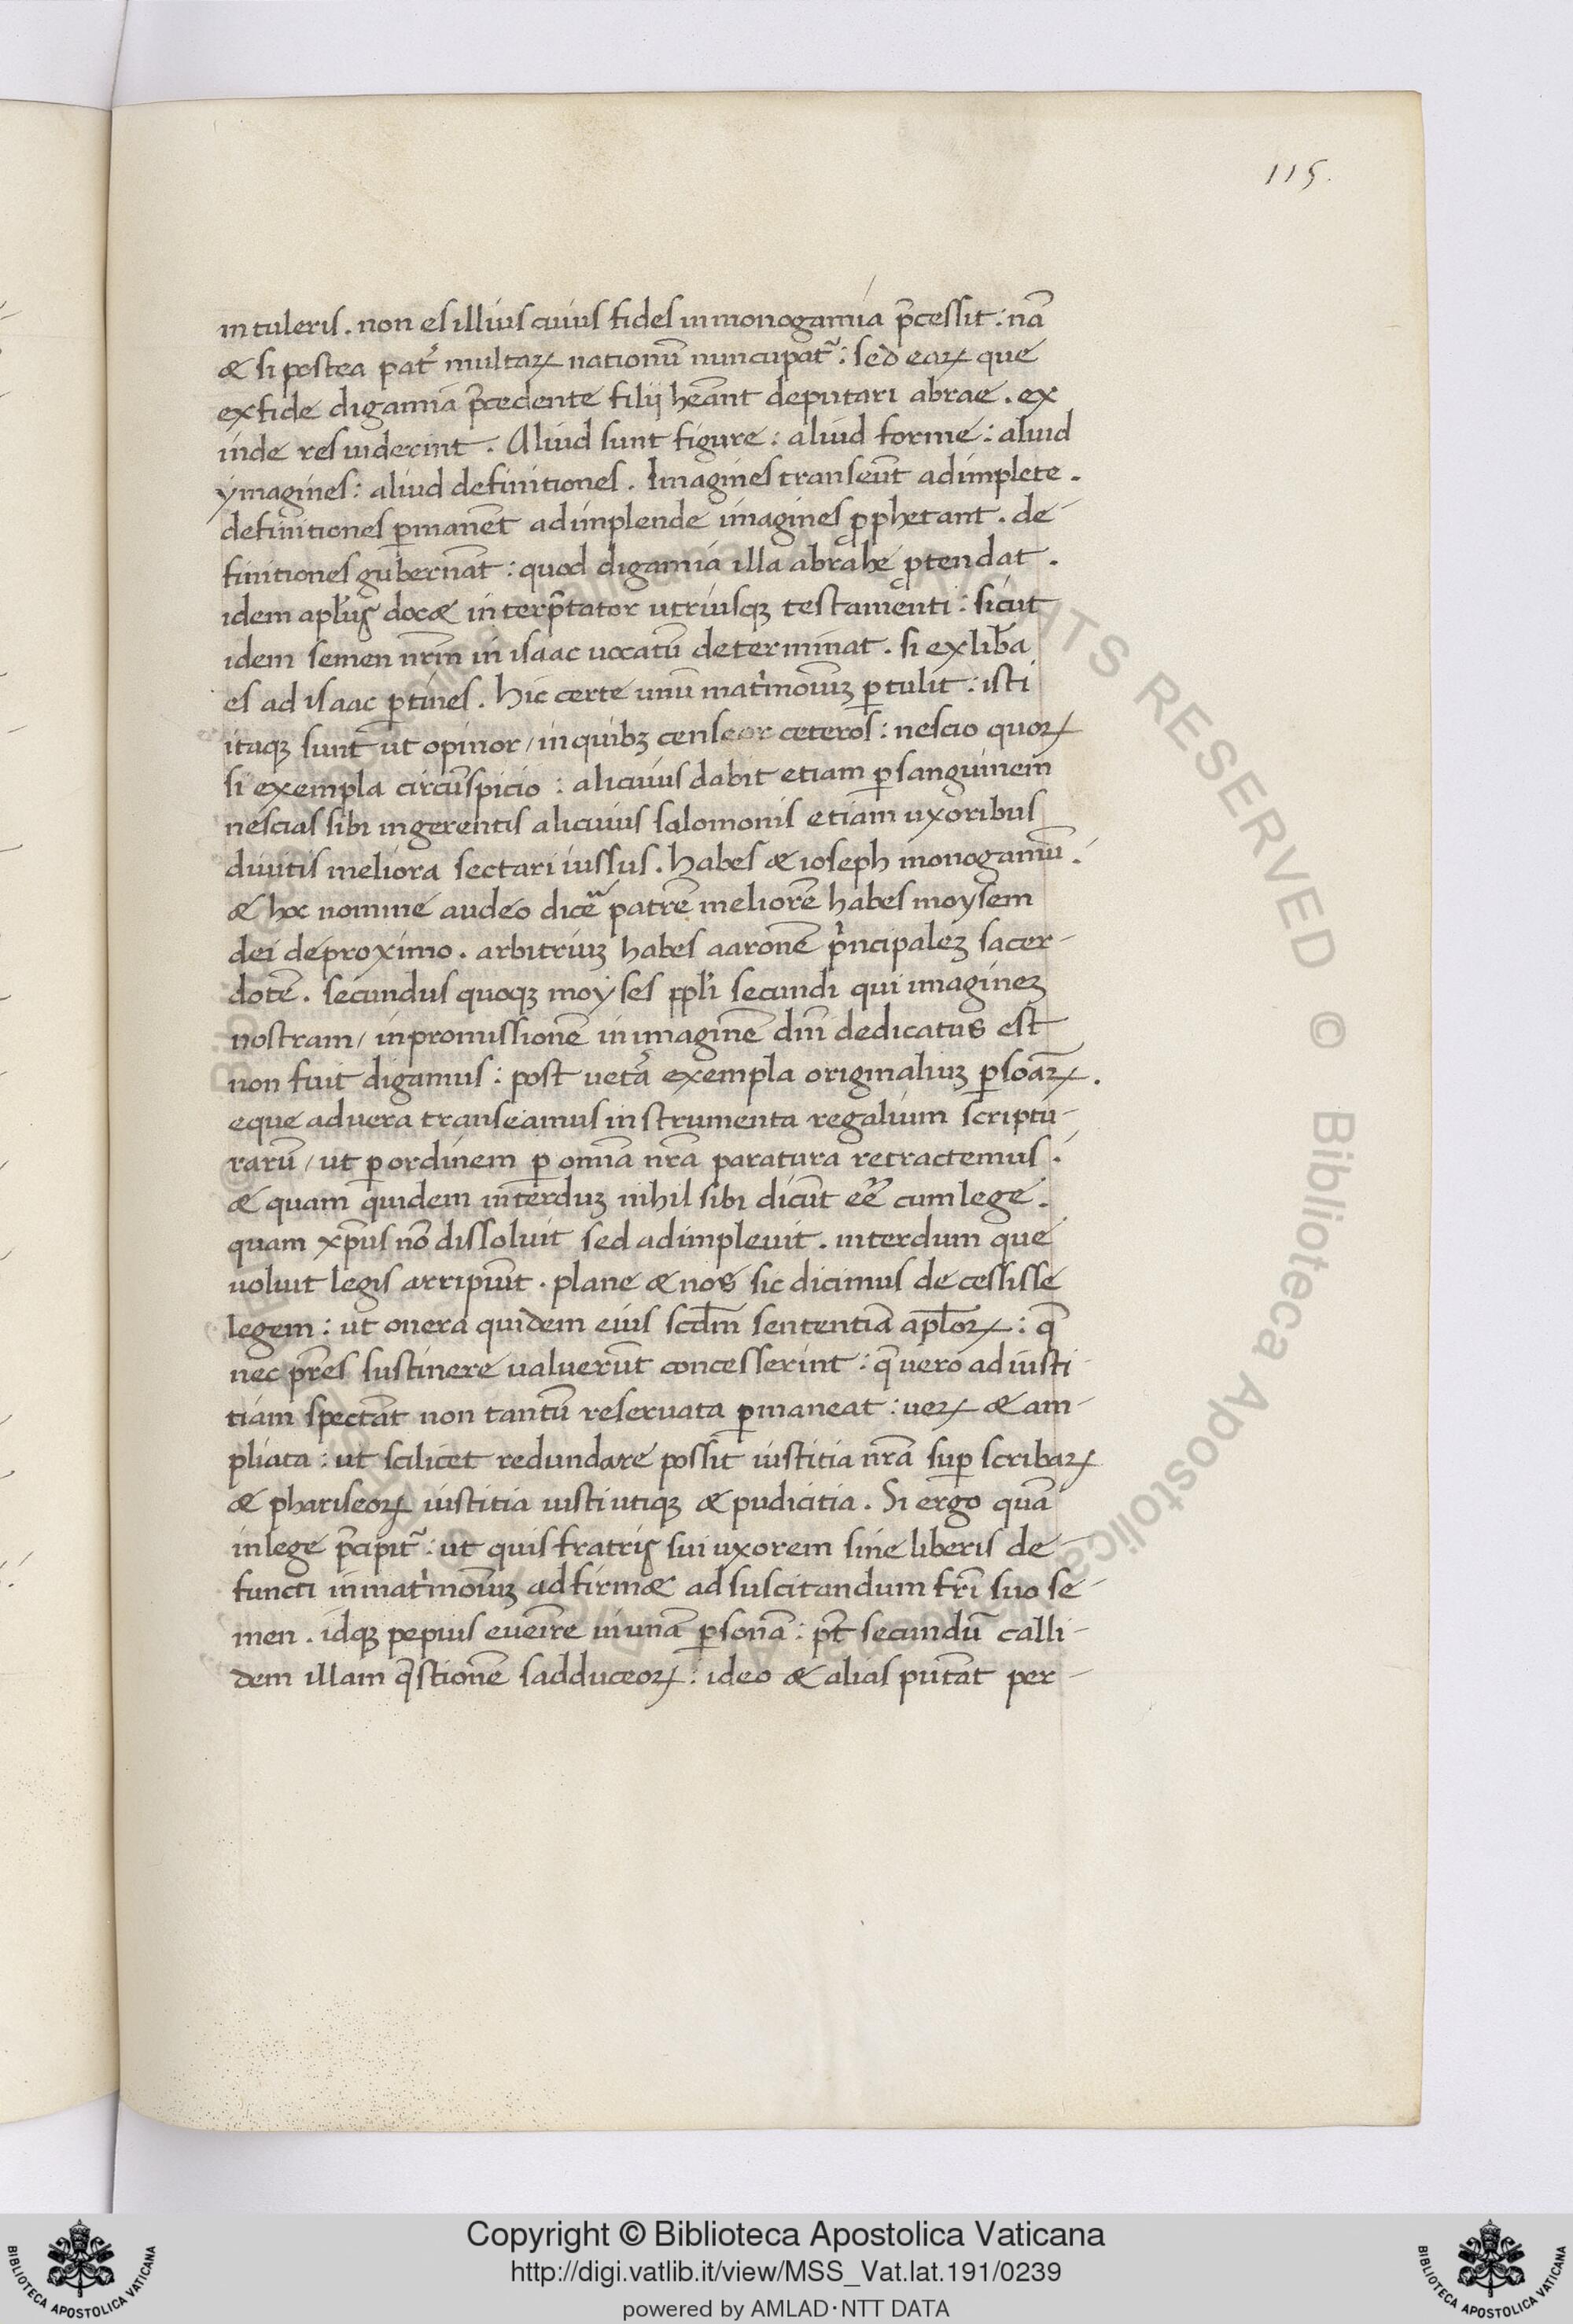 115.
intuleris. non es illius cuius fides in monogamia p̄cessit: nā
& si postea pat͛ multaꝝ nationū nuncupat᷑: sed eaꝝ que
ex fide digamiā p̄cedente filij heānt deputari abrae. ex
inde res uiderint. Aliud sunt figure: aliud forme: aliud
ymagines: aliud definitiones. Imagines transeūt adimplete.
definitiones ꝑmanēt adimplende imagines ꝓphetant. de-
finitiones gubernāt: quod digamia illa abrahe ꝓtendat.
idem apl̃us doc& interp̄tator utriusqꝫ testamenti: sicut
idem semen nr̄m in isaac uocatū determinat. si ex lib̃a
es ad isaac ꝑtines. Hic certe unū mat'moniuꝫ ꝑtulit: isti
itaqꝫ sunt ut opinor / in quibꝫ censeor ceteros: nescio quoꝝ
si exempla circūspicio: alicuius dabit etiam ꝑ sanguinem
nescias sibi ingerentis alicuius salomonis etiam uxoribus
diuitis meliora sectari iussus. Habes & ioseph monogamū.
& hoc nomine audeo dicẽ patrē meliorē habes moysem
dei de proximo. arbitriuꝫ habes aaronē p'ncipaleꝫ sacer-
dotē. secundus quoqꝫ moyses ppl'i secundi qui imagineꝫ
nostram / in promissionē in imaginē dn̄i dedicatus est
non fuit digamus: post uetā exempla originaliuꝫ ꝑsoaꝝ.
eque ad uera transeamus instrumenta regalium scriptu-
rarū / ut ꝑ ordinem ꝑ omnā nr̄a paratura retractemus.
& quam quidem interduꝫ nihil sibi dicūt eē cum lege.
quam xp̄us nō dissoluit sed adimpleuit. interdum que
uoluit legis arripiūt. plane & nos sic dicimus decessisse
legem: ut onera quidem eius scd̄m sententiā apl̄oꝝ: q̄
nec pr̄es sustinere ualuerūt concesserint: q̄ uero ad iusti-
tiam spectāt non tantū reseruata ꝑmaneat: ueꝝ & am-
pliata: ut scilicet redundare possit iustitia nr̄a suꝑ scribaꝝ
& phariseoꝝ iustitia iusti utiqꝫ & pudicitia. Si ergo quā
in lege p̄cipit᷑: ut quis fratris sui uxorem sine liberis de-
functi in mat'moniuꝫ ad firm& ad suscitandum fr̄i suo se-
men. idqꝫ pepius eueīre in unā ꝑsonā: pt̄ secundū calli-
dem illam q̄stionē sadduceoꝝ: ideo & alias putāt per-
© Biblioteca Apostolica Vaticana
Copyright © Biblioteca Apostolica Vaticana
http://digi.vatlib.it/view/MSS_Vat.lat.191/0239
powered by AMLAD·NTT DATA
BIBLIOTECA APOSTOLICA VATICANA
BIBLIOTECA APOSTOLICA VATICANA